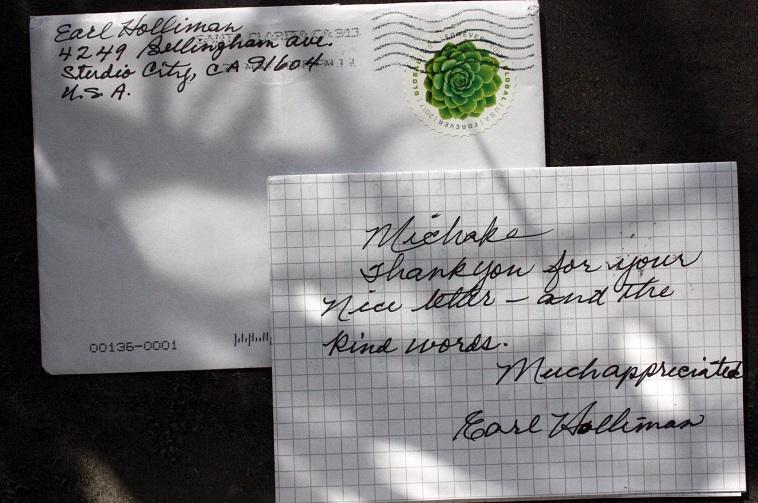 Earl Holliman
4249 Bellingham Ave.
Studio City, CA 91604
U.S.A.
GLOBAL | USA | FOREVER | 2017
00136-0001
Thank you for your
nice letter – and the
kind words.
Much appreciated
Earl Holliman